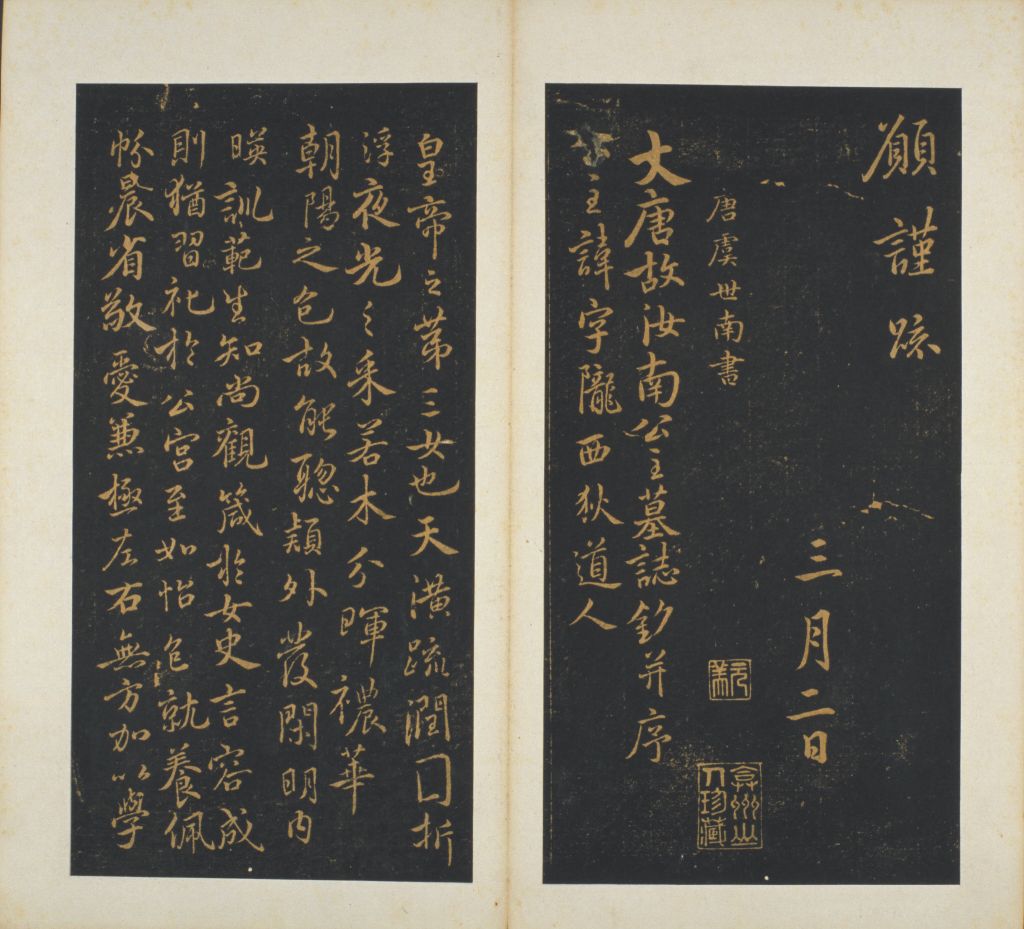 願謹疏
三月二日
唐虞世南書
大唐故汝南公主墓誌銘并序
公主諱字隴西狄道人
元美
弇州山人珍藏
皇帝之第三女也天潢疏潤圓折
浮夜光之采若木分暉穠華
朝陽之色故能聰穎外發閑明內
暎訓範生知尚觀箴於女史言容成
則猶習礼於公宮至如怡色就養佩
帉晨省敬愛兼極左右無方加以學